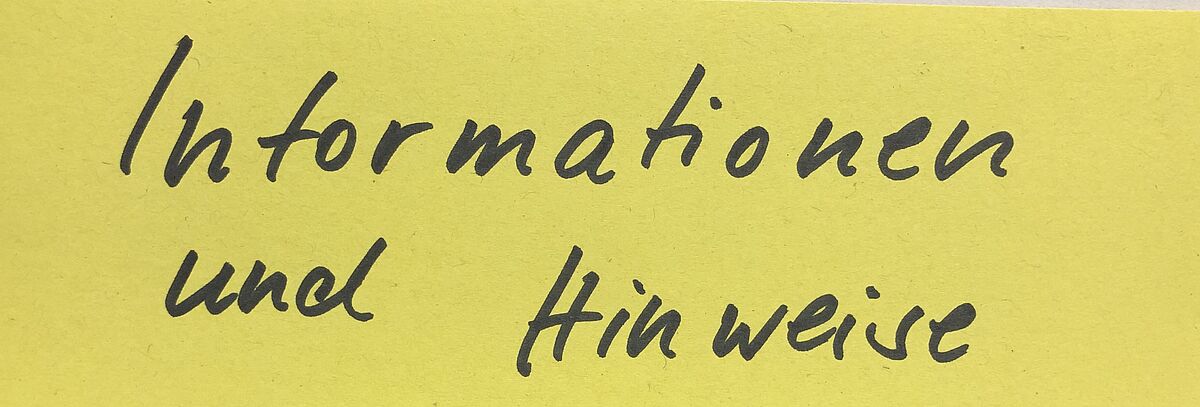 Informationen
und Hinweise